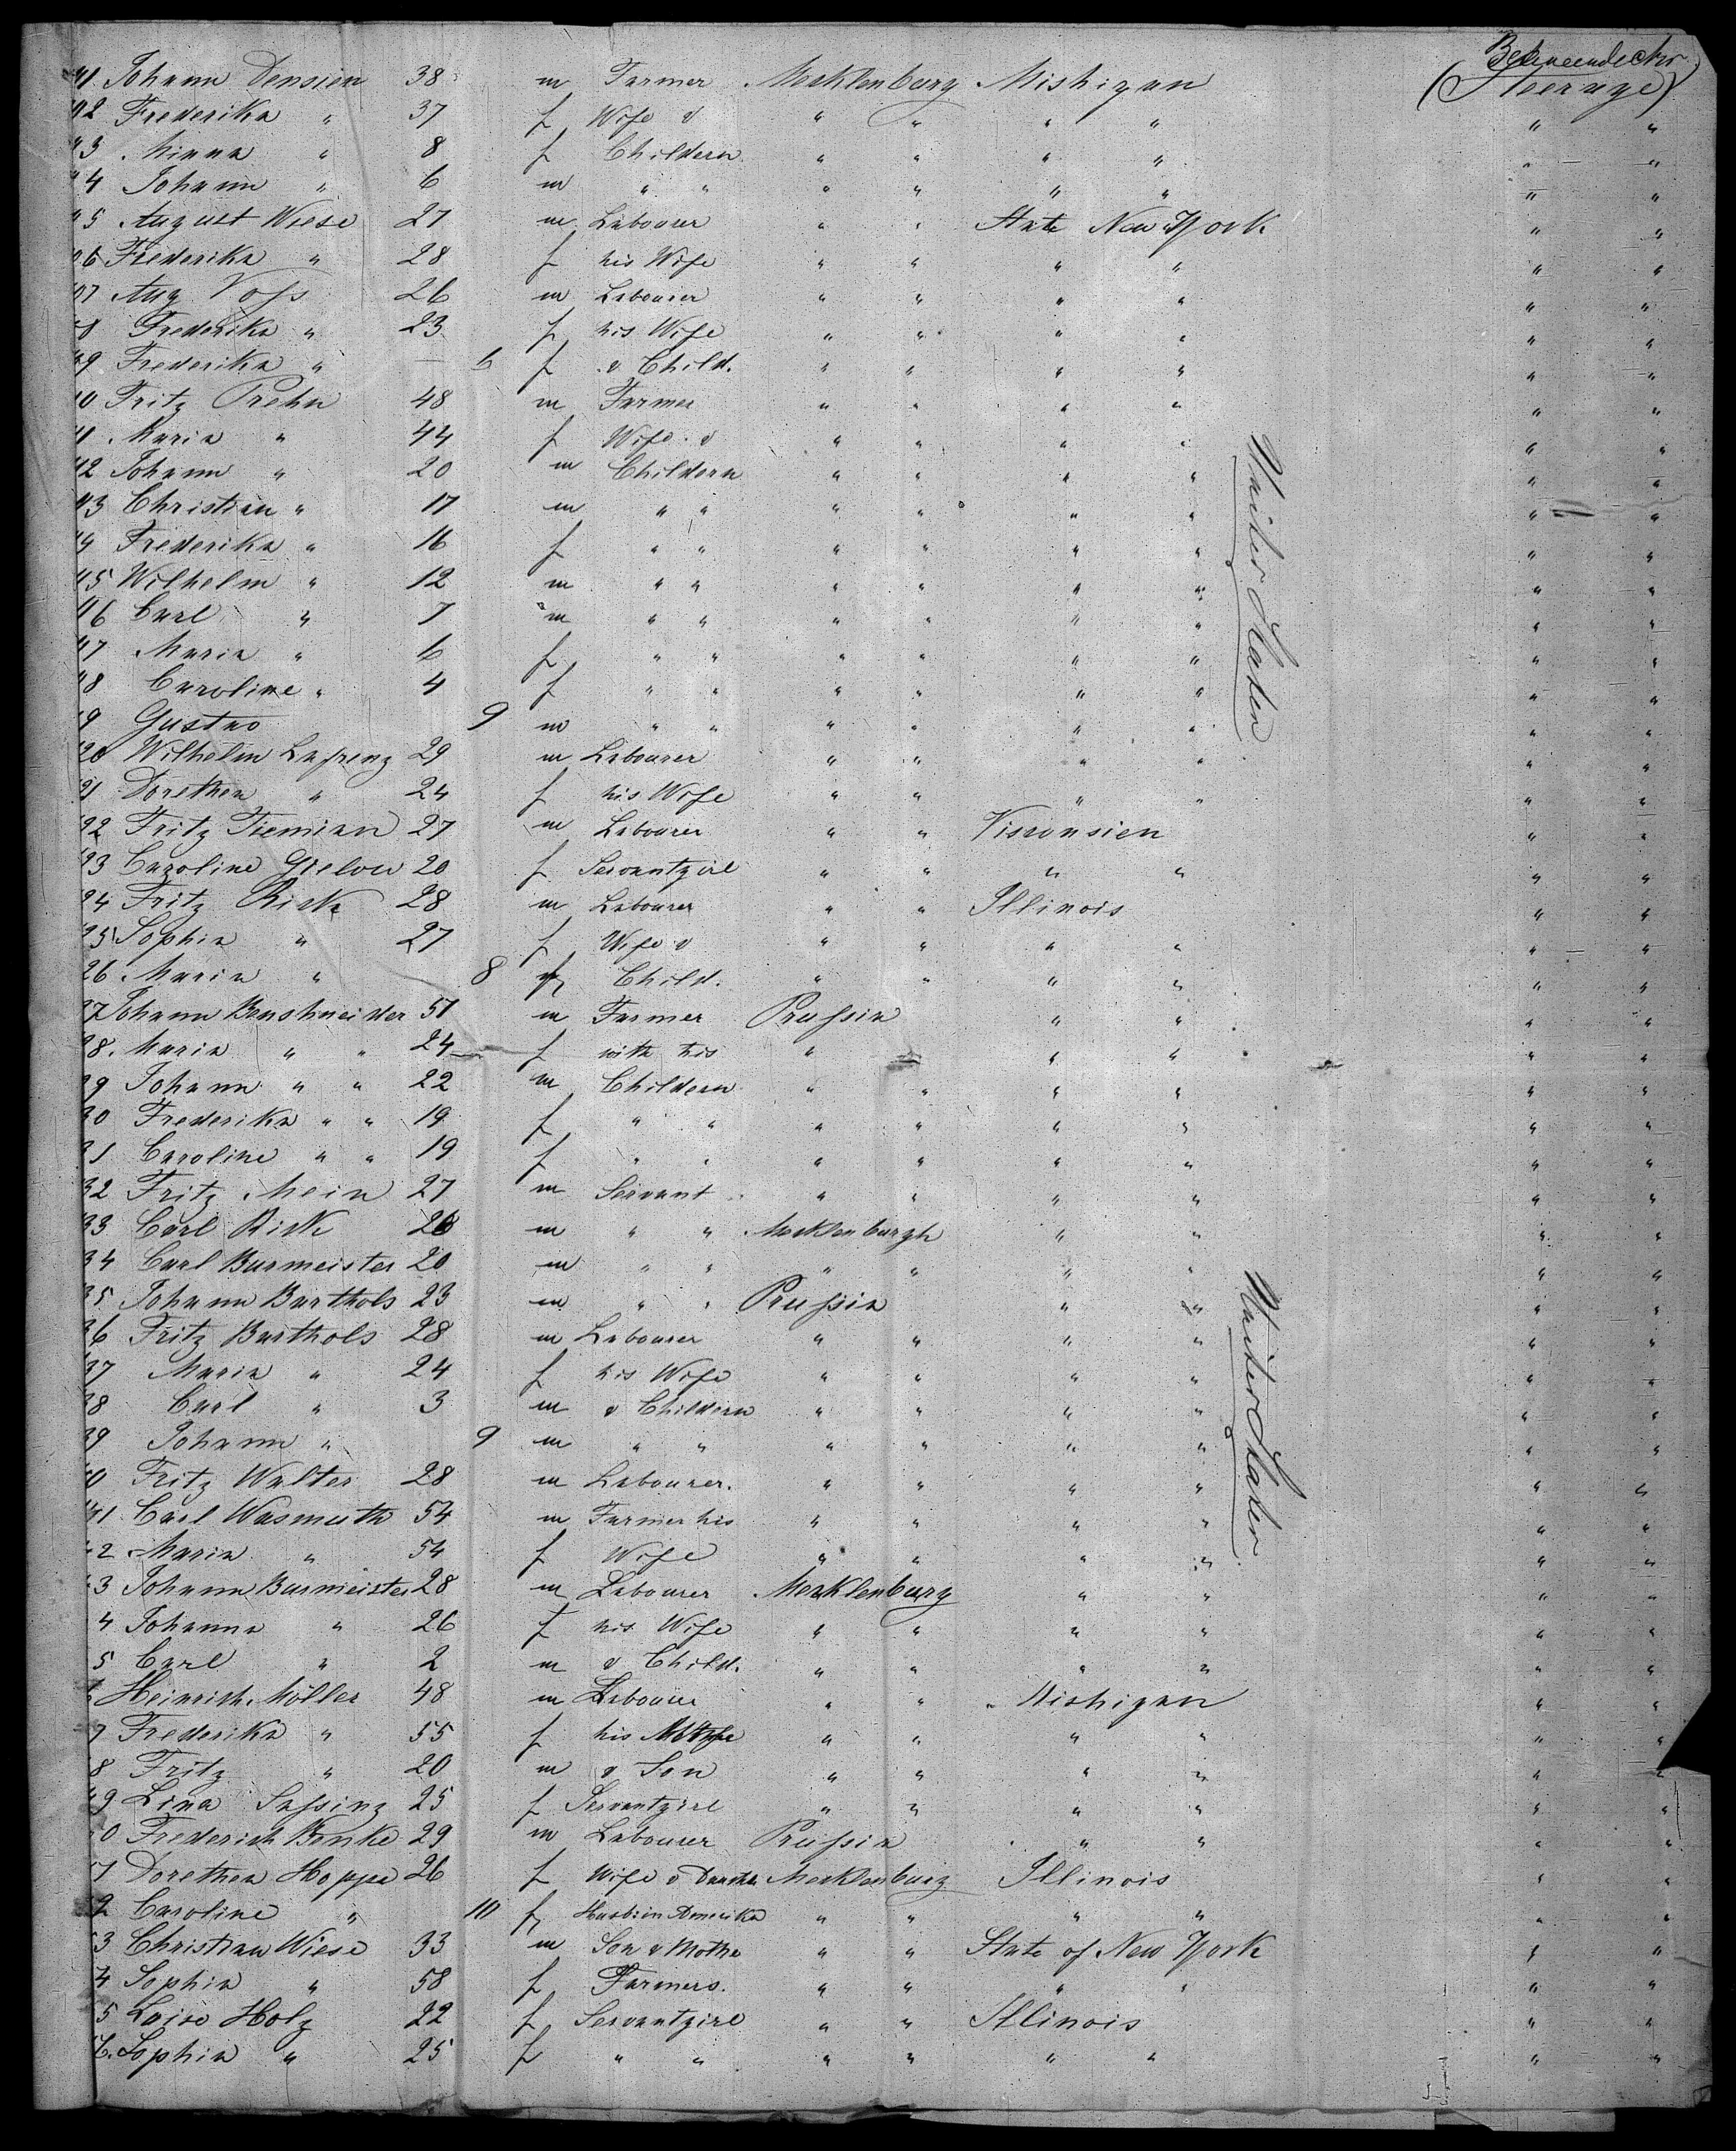 Betweendecks
41 Johann Densien 38 m Farmer Mecklenburg Mishigan (Steerage)
42 Frederika " 37 f Wife & " " " " " "
43 Minna " 8 f Childern " " " " " "
44 Johann " 6 m " " " " " " " "
45 August Wiese 27 m Labourer " " State New York " "
06 Frederika " 28 f his Wife " " " " " "
07 Aug Voss 26 m Labourer " " " " " "
8 Frederika " 23 f his Wife " " " " " "
09 Frederika " 6 f & Child. " " " " " "
10 Fritz Prehn 48 m Farmer " " " " " "
11 Maria " 44 f Wife & " " " " " "
12 Johann " 20 m Childern " " " " " "
13 Christian " 17 m " " " " " " " "
14 Frederika " 16 f " " " " " " " "
15 Wilhelm " 12 m " " " " " " " "
16 Carl " 7 m " " " " " " " "
17 Maria " 6 f " " " " " " " "
18 Caroline " 4 f " " " " " " " "
19 Gustav 9 m " " " " " " " "
20 Wilhelm Lafrenz 29 m Labourer " " " " " "
21 Dorethea " 24 f his Wife " " " " " "
22 Fritz Tiemian 27 m Labourer " " Visconsien " "
23 Caroline Gielow 20 f Servantgirl " " " " " "
24 Fritz Rick 28 m Labourer " " Illinois " "
25 Sophia " 27 f Wife & " " " " " "
26 Maria " 8 f Child. " " " " " "
27 Johann Benshneider 51 m Farmer Prussia " " " "
28. Maria " " 24 f with his " " " " " "
29 Johann " " 22 m Childern " " " " " "
30 Frederika " " 19 f " " " " " " " "
31 Caroline " " 19 f " " " " " " " "
32 Fritz Mein 27 m Servant " " " " " "
33 Carl Rick 26 m " " Mecklenburgh " " " "
34 Carl Burmeister 20 m " " " " " " " "
35 Johann Barthols 23 m " " Prussia " " " "
36 Fritz Barthols 28 m Labourer " " " " " "
37 Maria " 24 f his Wife " " " " " "
38 Carl " 3 m & Childern " " " " " "
39 Johann " 9 m " " " " " " " "
40 Fritz Walter 28 m Labourer. " " " " " "
41 Carl Wasmuth 54 m Farmer his " " " " " "
42 Maria " 54 f Wife " " " " " "
43 Johann Burmeister 28 m Labourer Mecklenburg " " " "
4 Johanna " 26 f his Wife " " " " " "
5 Carl " 2 m & Child. " " " " " "
6 Heinrich Möller 48 m Labourer " " Mishigan " "
7 Frederika " 55 f his " " " " " "
8 Fritz " 20 m & Son " " " " " "
49 Lina Sassing 25 f Servantgirl " " " " " "
0 Frederich Benke 29 m Labourer Prussia " " " "
51 Dorethea Hoppe 26 f Wife & Mecklenburg Illinois " "
2 Caroline " 10 f Husb: in Amerika " " " " " "
53 Christian Wiese 33 m Son & Mothe " " State of New York " "
4 Sophia " 58 f Farmers. " " " " " "
5 Loise Holz 22 f Servantgirl " " Illinois " "
56. Sophia " 25 f " " " " " " " "
United States
United States